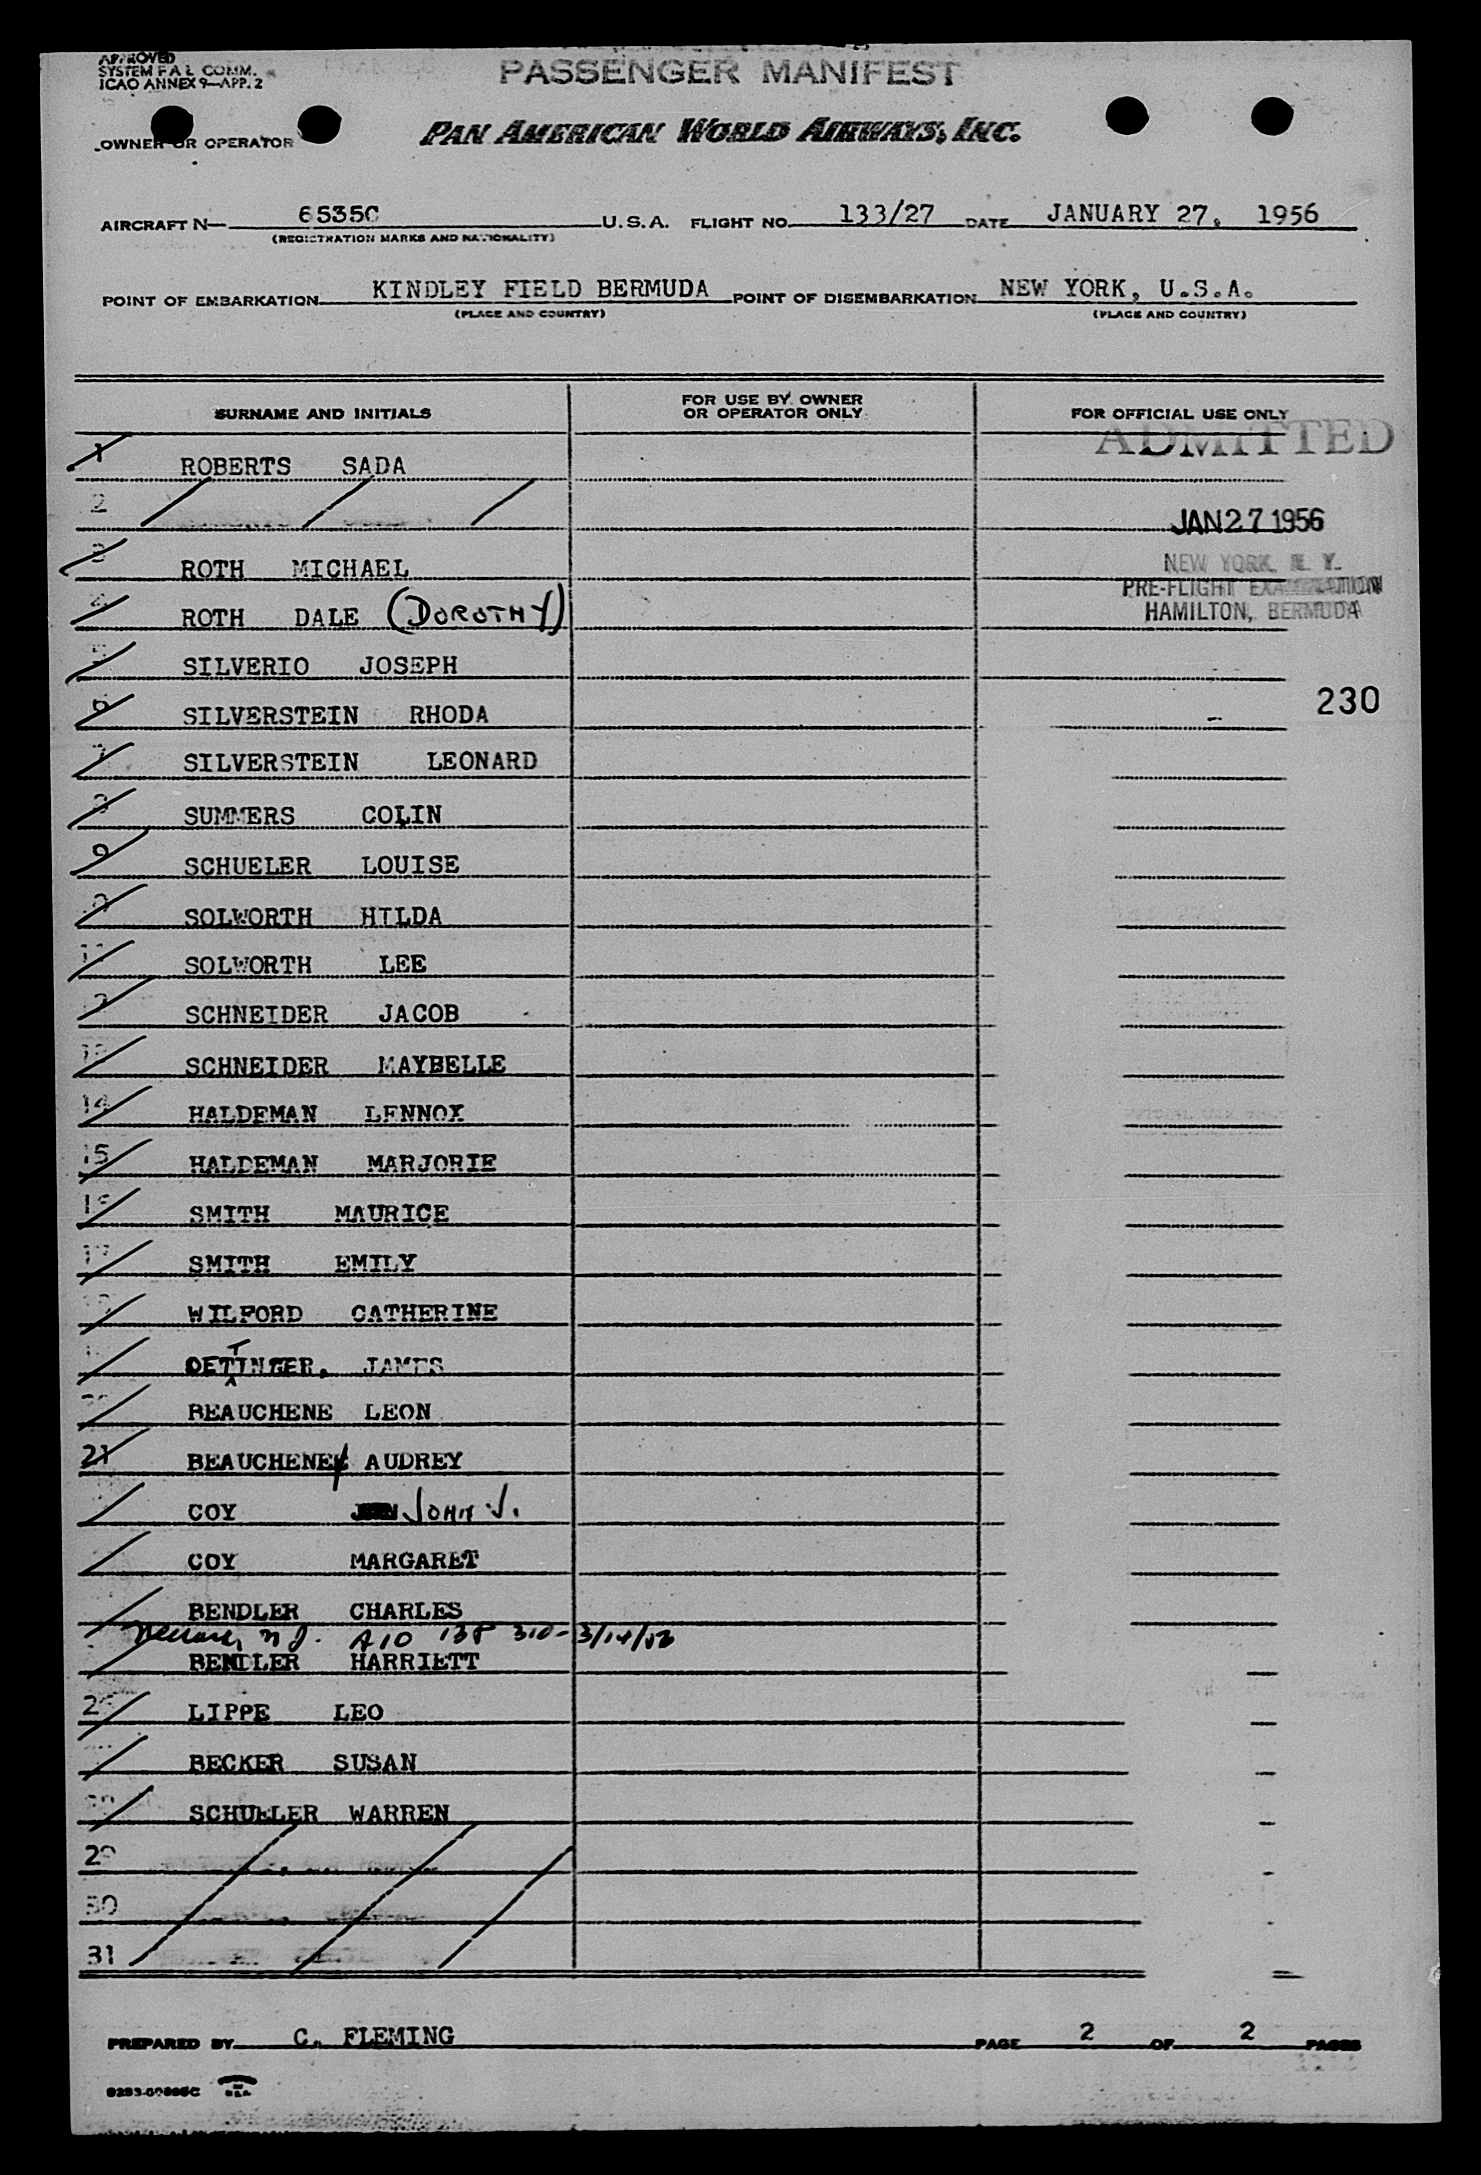 APPROVED
SYSTEM F A L COMM.
ICAO ANNEX 9—APP. 2
PASSENGER MANIFEST
OWNER OR OPERATOR
PAN AMERICAN WORLD AIRWAYS, INC.
AIRCRAFT N— 6535C U.S.A. FLIGHT NO. 133/27 DATE JANUARY 27, 1956
(REGISTRATION MARKS AND NATIONALITY)
POINT OF EMBARKATION KINDLEY FIELD BERMUDA POINT OF DISEMBARKATION NEW YORK, U.S.A.
(PLACE AND COUNTRY) (PLACE AND COUNTRY)
SURNAME AND INITIALS FOR USE BY OWNER OR OPERATOR ONLY FOR OFFICIAL USE ONLY
ADMITTED
1 ROBERTS SADA
2
JAN 27 1956
3 ROTH MICHAEL
NEW YORK, N. Y.
PRE-FLIGHT EXAMINATION
HAMILTON, BERMUDA
4 ROTH DALE (DOROTHY)
5 SILVERIO JOSEPH
6 SILVERSTEIN RHODA
230
7 SILVERSTEIN LEONARD
8 SUMMERS COLIN
9 SCHUELER LOUISE
10 SOLWORTH HILDA
11 SOLWORTH LEE
12 SCHNEIDER JACOB
13 SCHNEIDER MAYBELLE
14 HALDEMAN LENNOX
15 HALDEMAN MARJORIE
16 SMITH MAURICE
17 SMITH EMILY
WILFORD CATHERINE
OETTINGER, JAMES
BEAUCHENE LEON
21 BEAUCHENE AUDREY
COY JOHN J.
COY MARGARET
BENDLER CHARLES
Newark, N J. A10 138 310 - 3/14/56
BENDLER HARRIETT
26 LIPPE LEO
BECKER SUSAN
28 SCHUELER WARREN
29
30
31
PREPARED BY C. FLEMING PAGE 2 OF 2 PAGES